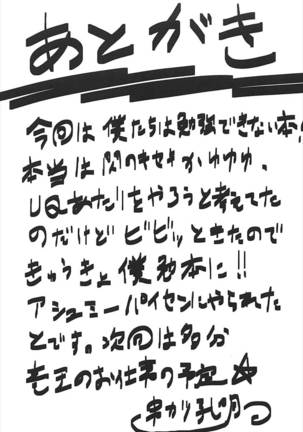 あとがき
今回は僕たちは勉強できない本!
本当は閃のキセキかゆゆゆ、
UQあたりをやろうと考えてた
のだけどビビッときたので
きゅうきょ僕勉本に!!
アシュミーパイセンにやられた
とです。次回は多分
竜王のおしごとの予定☆
串がり孔明